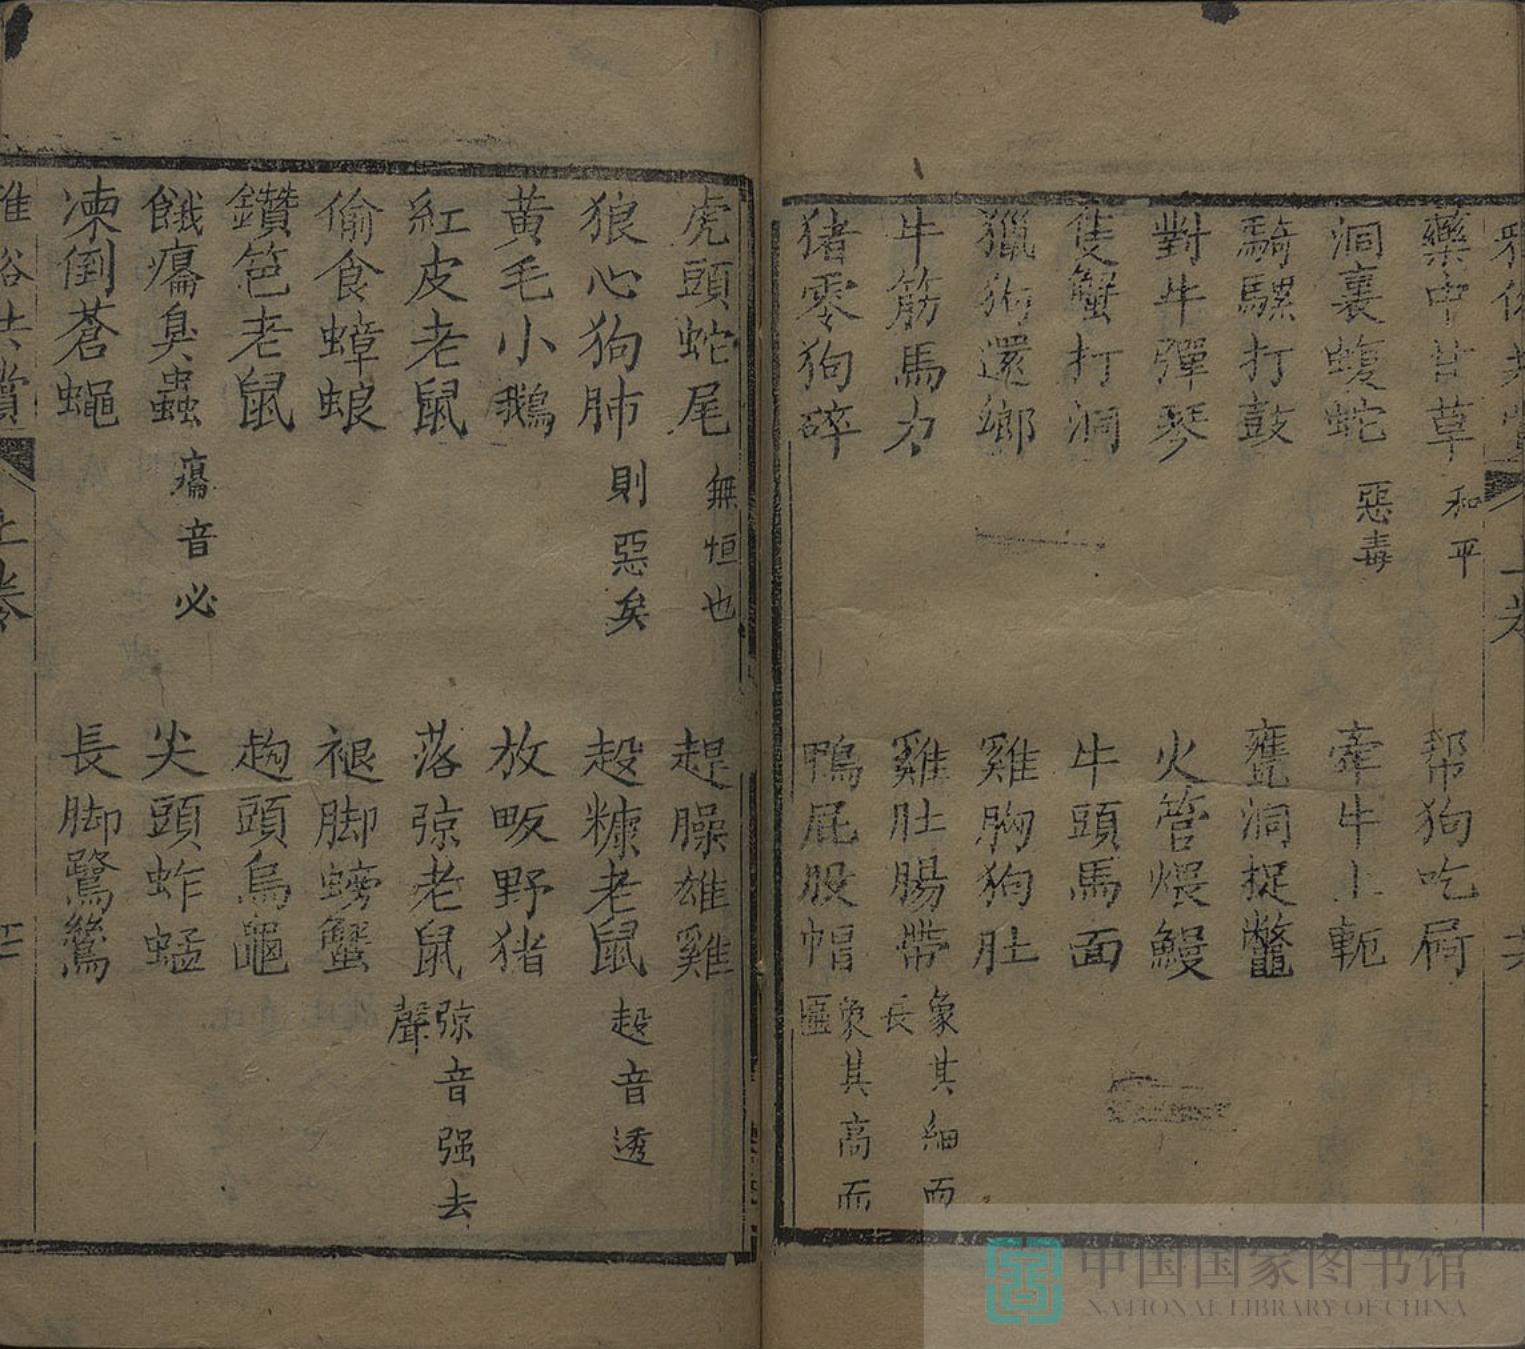 藥中甘草 和平 帮狗吃屙
洞裏蝮蛇 惡毒 牽牛上軛
騎騾打鼓 甕洞捉鼈
對牛彈琴 火管煨鰻
隻蟹打洞 牛頭馬面
獵狗還鄉 雞胸狗肚
牛筋馬力 雞肚腸帶 象其細而長
猪零狗碎 鴨屁股帽 象其高而匾
虎頭蛇尾 無恒也 趕臊雄雞
狼心狗肺 則惡矣 起糠老鼠 起音透
黄毛小鵝 放畈野猪
紅皮老鼠 落弶老鼠 弶音强去聲
偷食蟑螂 褪脚螃蟹
鑽笆老鼠 頭烏龜
餓臭蟲 音必 尖頭蚱蜢
凍倒蒼蠅 長脚鷺鷥
上卷
中国国家图书馆
NATIONAL LIBRARY OF CHINA